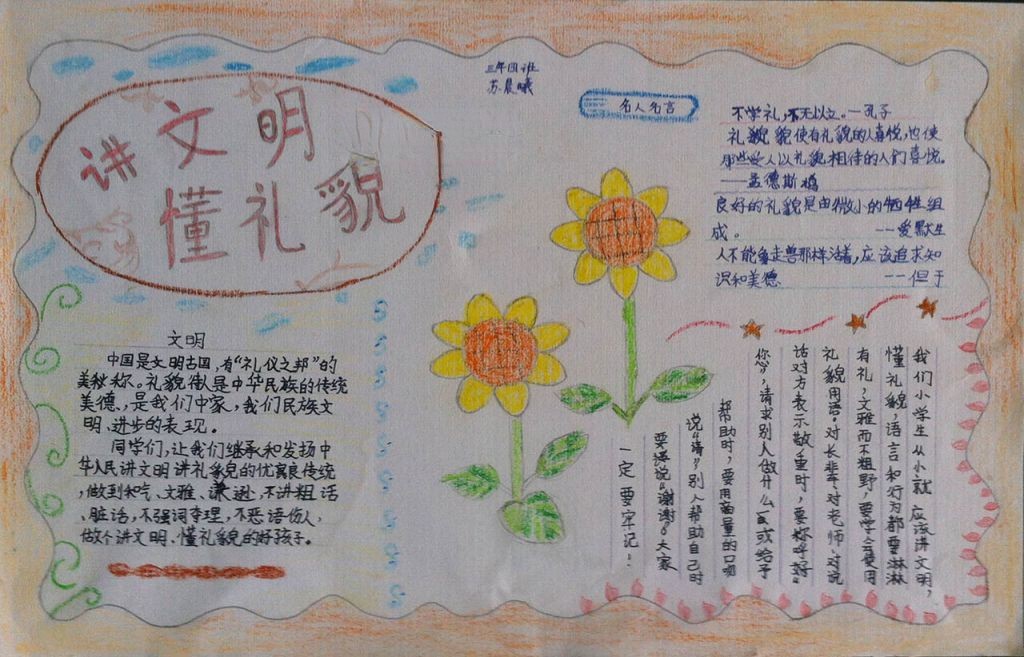 三年四班
苏晨曦
讲文明
懂礼貌
名人名言
不学礼,不无以立。—孔子
礼貌貌使有礼貌的人喜悦,也使
那些些人以礼貌相待的人们喜悦。
——孟德斯鸠
良好的礼貌是由微小的牺牲组
成。 --爱默生
人不能象走兽那样活着,应该追求知
识和美德 --但丁
文明
中国是文明古国,有“礼仪之邦”的
美称称。礼貌待人是中华民族的传统
美德,是我们中家,我们民族文
明、进步的表现。
同学们,让我们继承和发扬中
华人民讲文明讲礼貌的优良传统
,做到和气、文雅、谦逊,不讲粗话
、脏话,不强词夺理,不恶语伤人,
做个讲文明、懂礼貌的好孩子。
我们小学生从小就应该讲文明,
懂礼貌,语言和行为都要彬彬
有礼,文雅而不粗野,要学会使用
礼貌用语。对长辈、对老师、对说
话对方表示敬重时,要称呼“
您”,请求别人做什么或给予
帮助时,要用商量的口吻
说“请”别人帮助自己时
要说“谢谢”大家
一定要牢记: